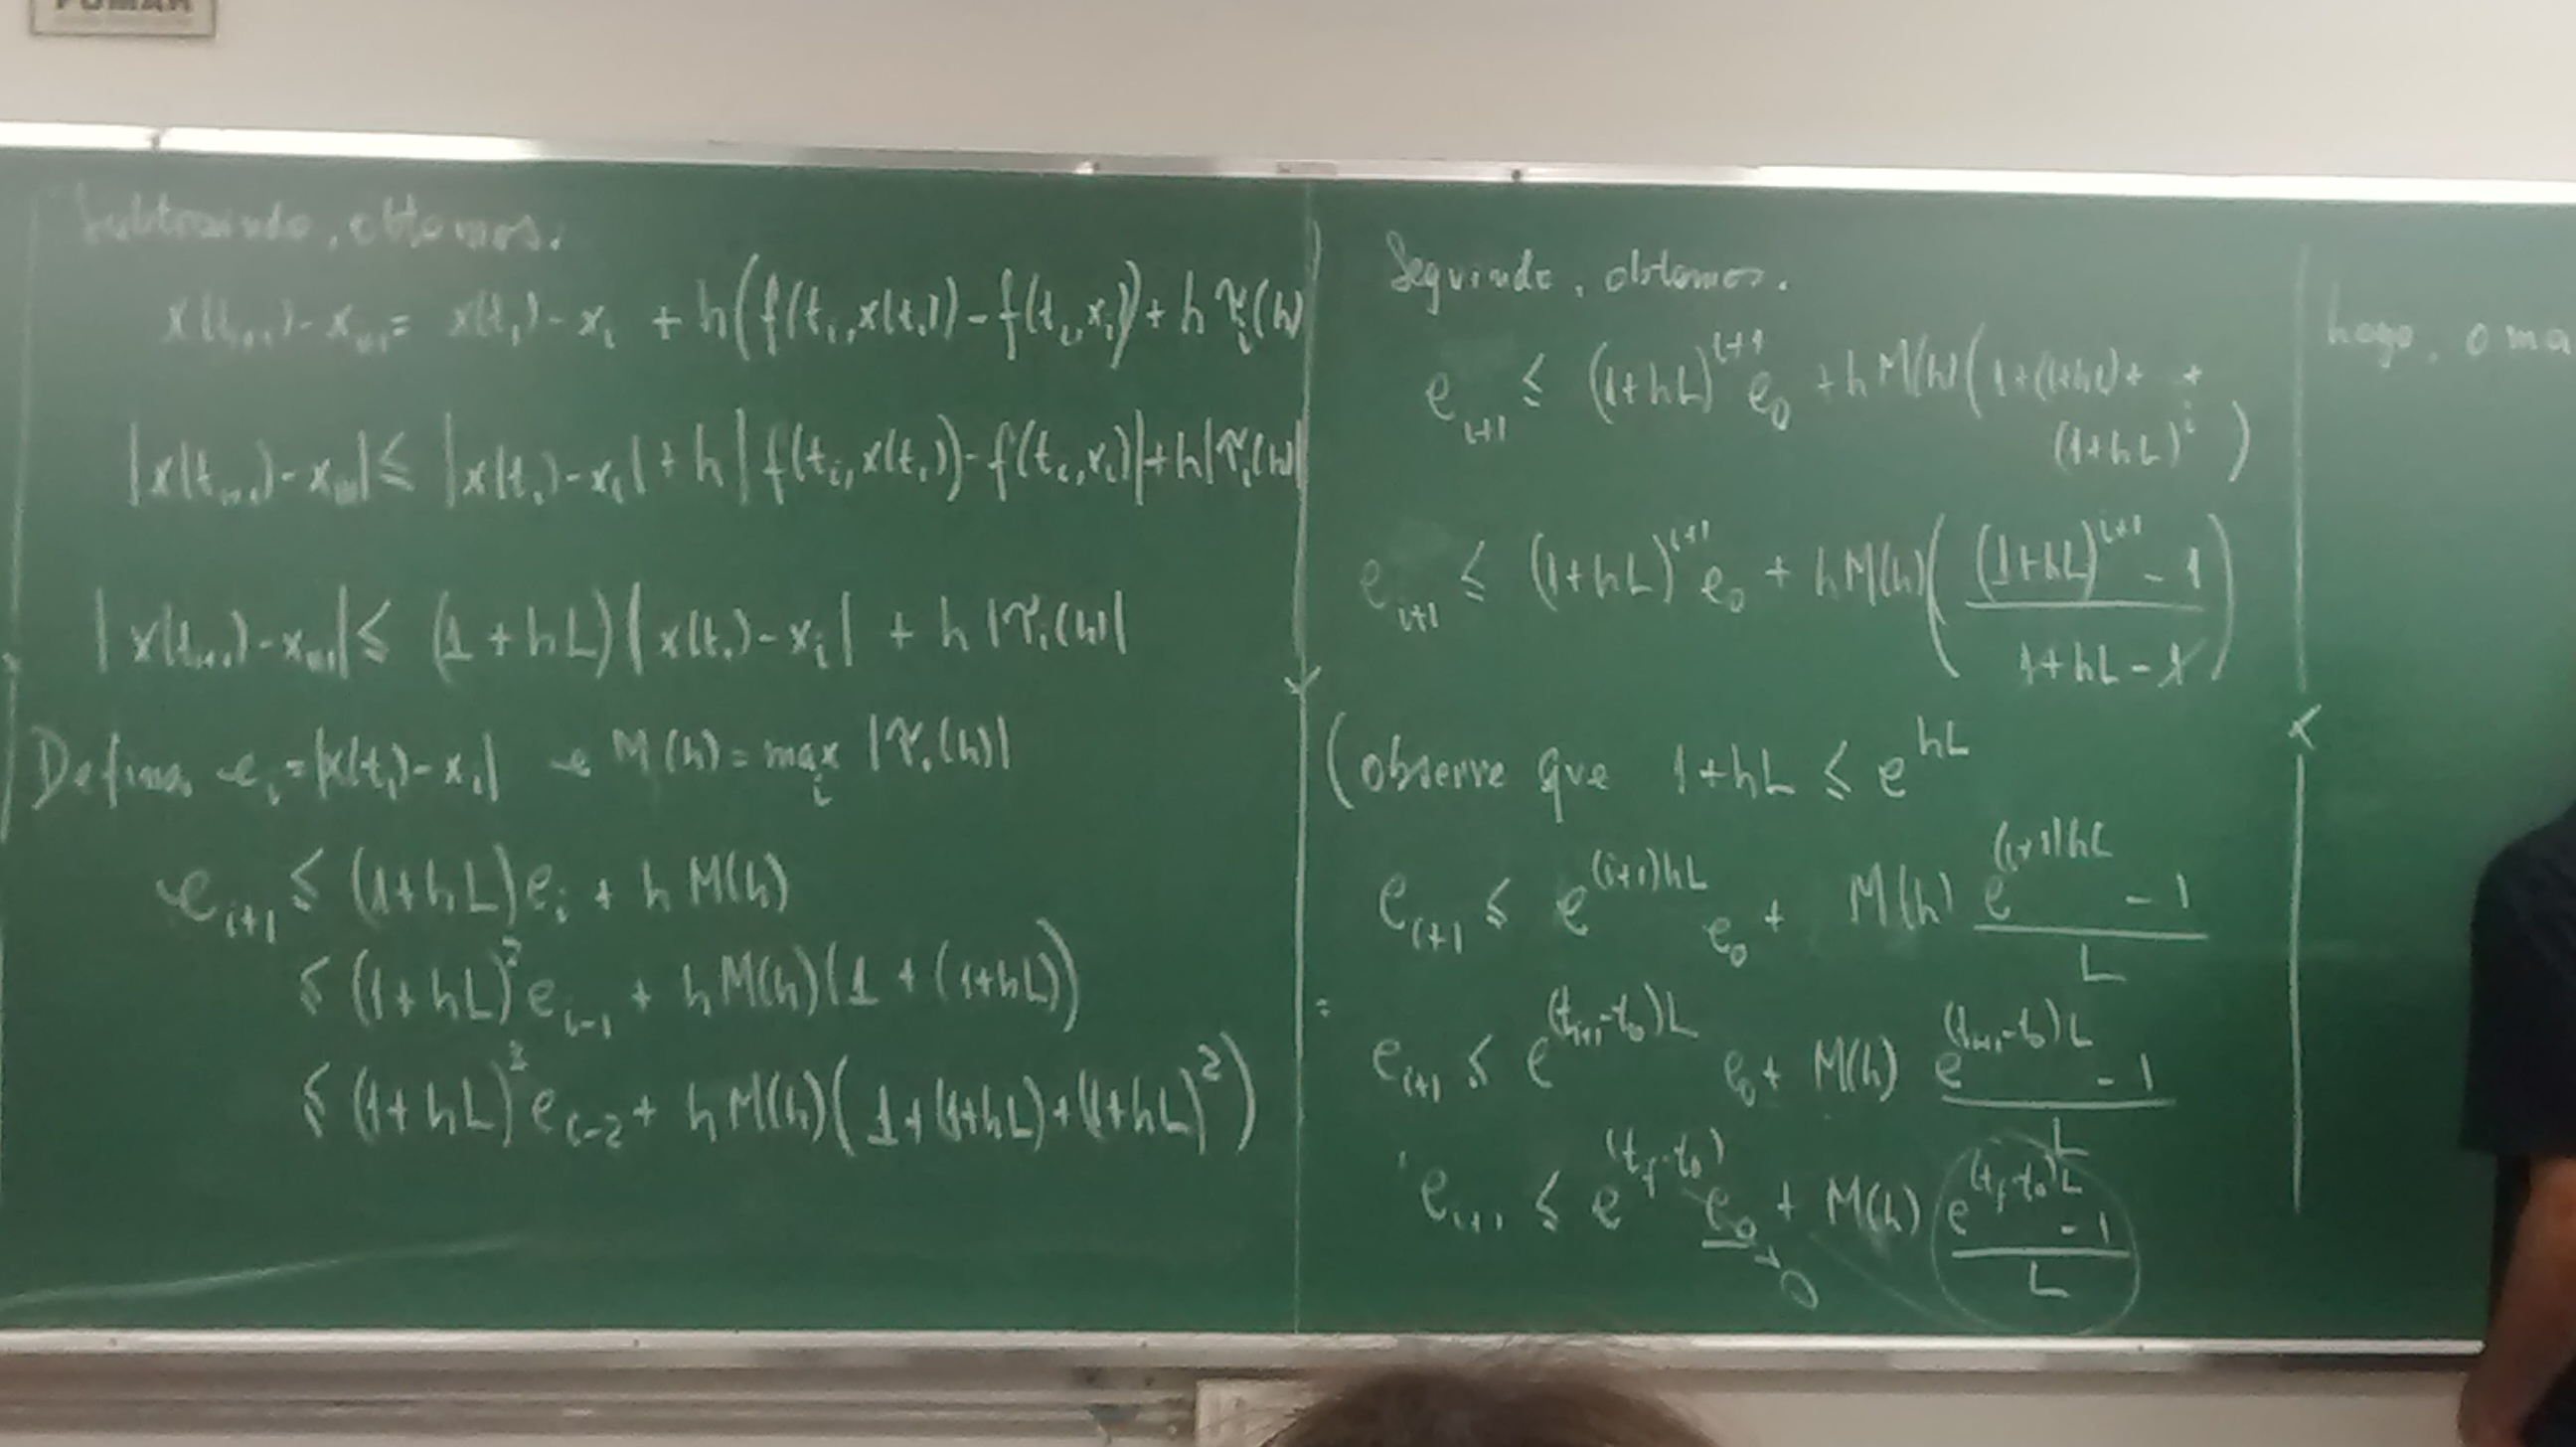 POMAR
Subtraindo, obtemos.
x(t_{i+1}) - x_{i+1} = x(t_i) - x_i + h(f(t_i, x(t_i)) - f(t_i, x_i)) + h τ_i(h)
|x(t_{i+1}) - x_{i+1}| ≤ |x(t_i) - x_i| + h|f(t_i, x(t_i)) - f(t_i, x_i)| + h|τ_i(h)|
|x(t_{i+1}) - x_{i+1}| ≤ (1 + hL)|x(t_i) - x_i| + h|τ_i(h)|
Defina e_i = |x(t_i) - x_i| e M(h) = max_i |τ_i(h)|
e_{i+1} ≤ (1+hL)e_i + h M(h)
≤ (1+hL)^2 e_{i-1} + h M(h)(1 + (1+hL))
≤ (1+hL)^3 e_{i-2} + h M(h)(1+(1+hL)+(1+hL)^2)
Seguindo, obtemos.
e_{i+1} ≤ (1+hL)^{i+1} e_0 + h M(h)(1+(1+hL)+ +
(1+hL)^i)
e_{i+1} ≤ (1+hL)^{i+1} e_0 + h M(h)(((1+hL)^{i+1} - 1)/(1+hL-1))
(observe que 1+hL ≤ e^{hL}
e_{i+1} ≤ e^{(i+1)hL} e_0 + M(h) (e^{(i+1)hL} - 1)/L
e_{i+1} ≤ e^{(t_{i+1}-t_0)L} e_0 + M(h) (e^{(t_{i+1}-t_0)L} - 1)/L
e_{i+1} ≤ e^{(t_f-t_0)} e_0 + M(h) (e^{(t_f-t_0)L} - 1)/L
→ 0
logo, o ma